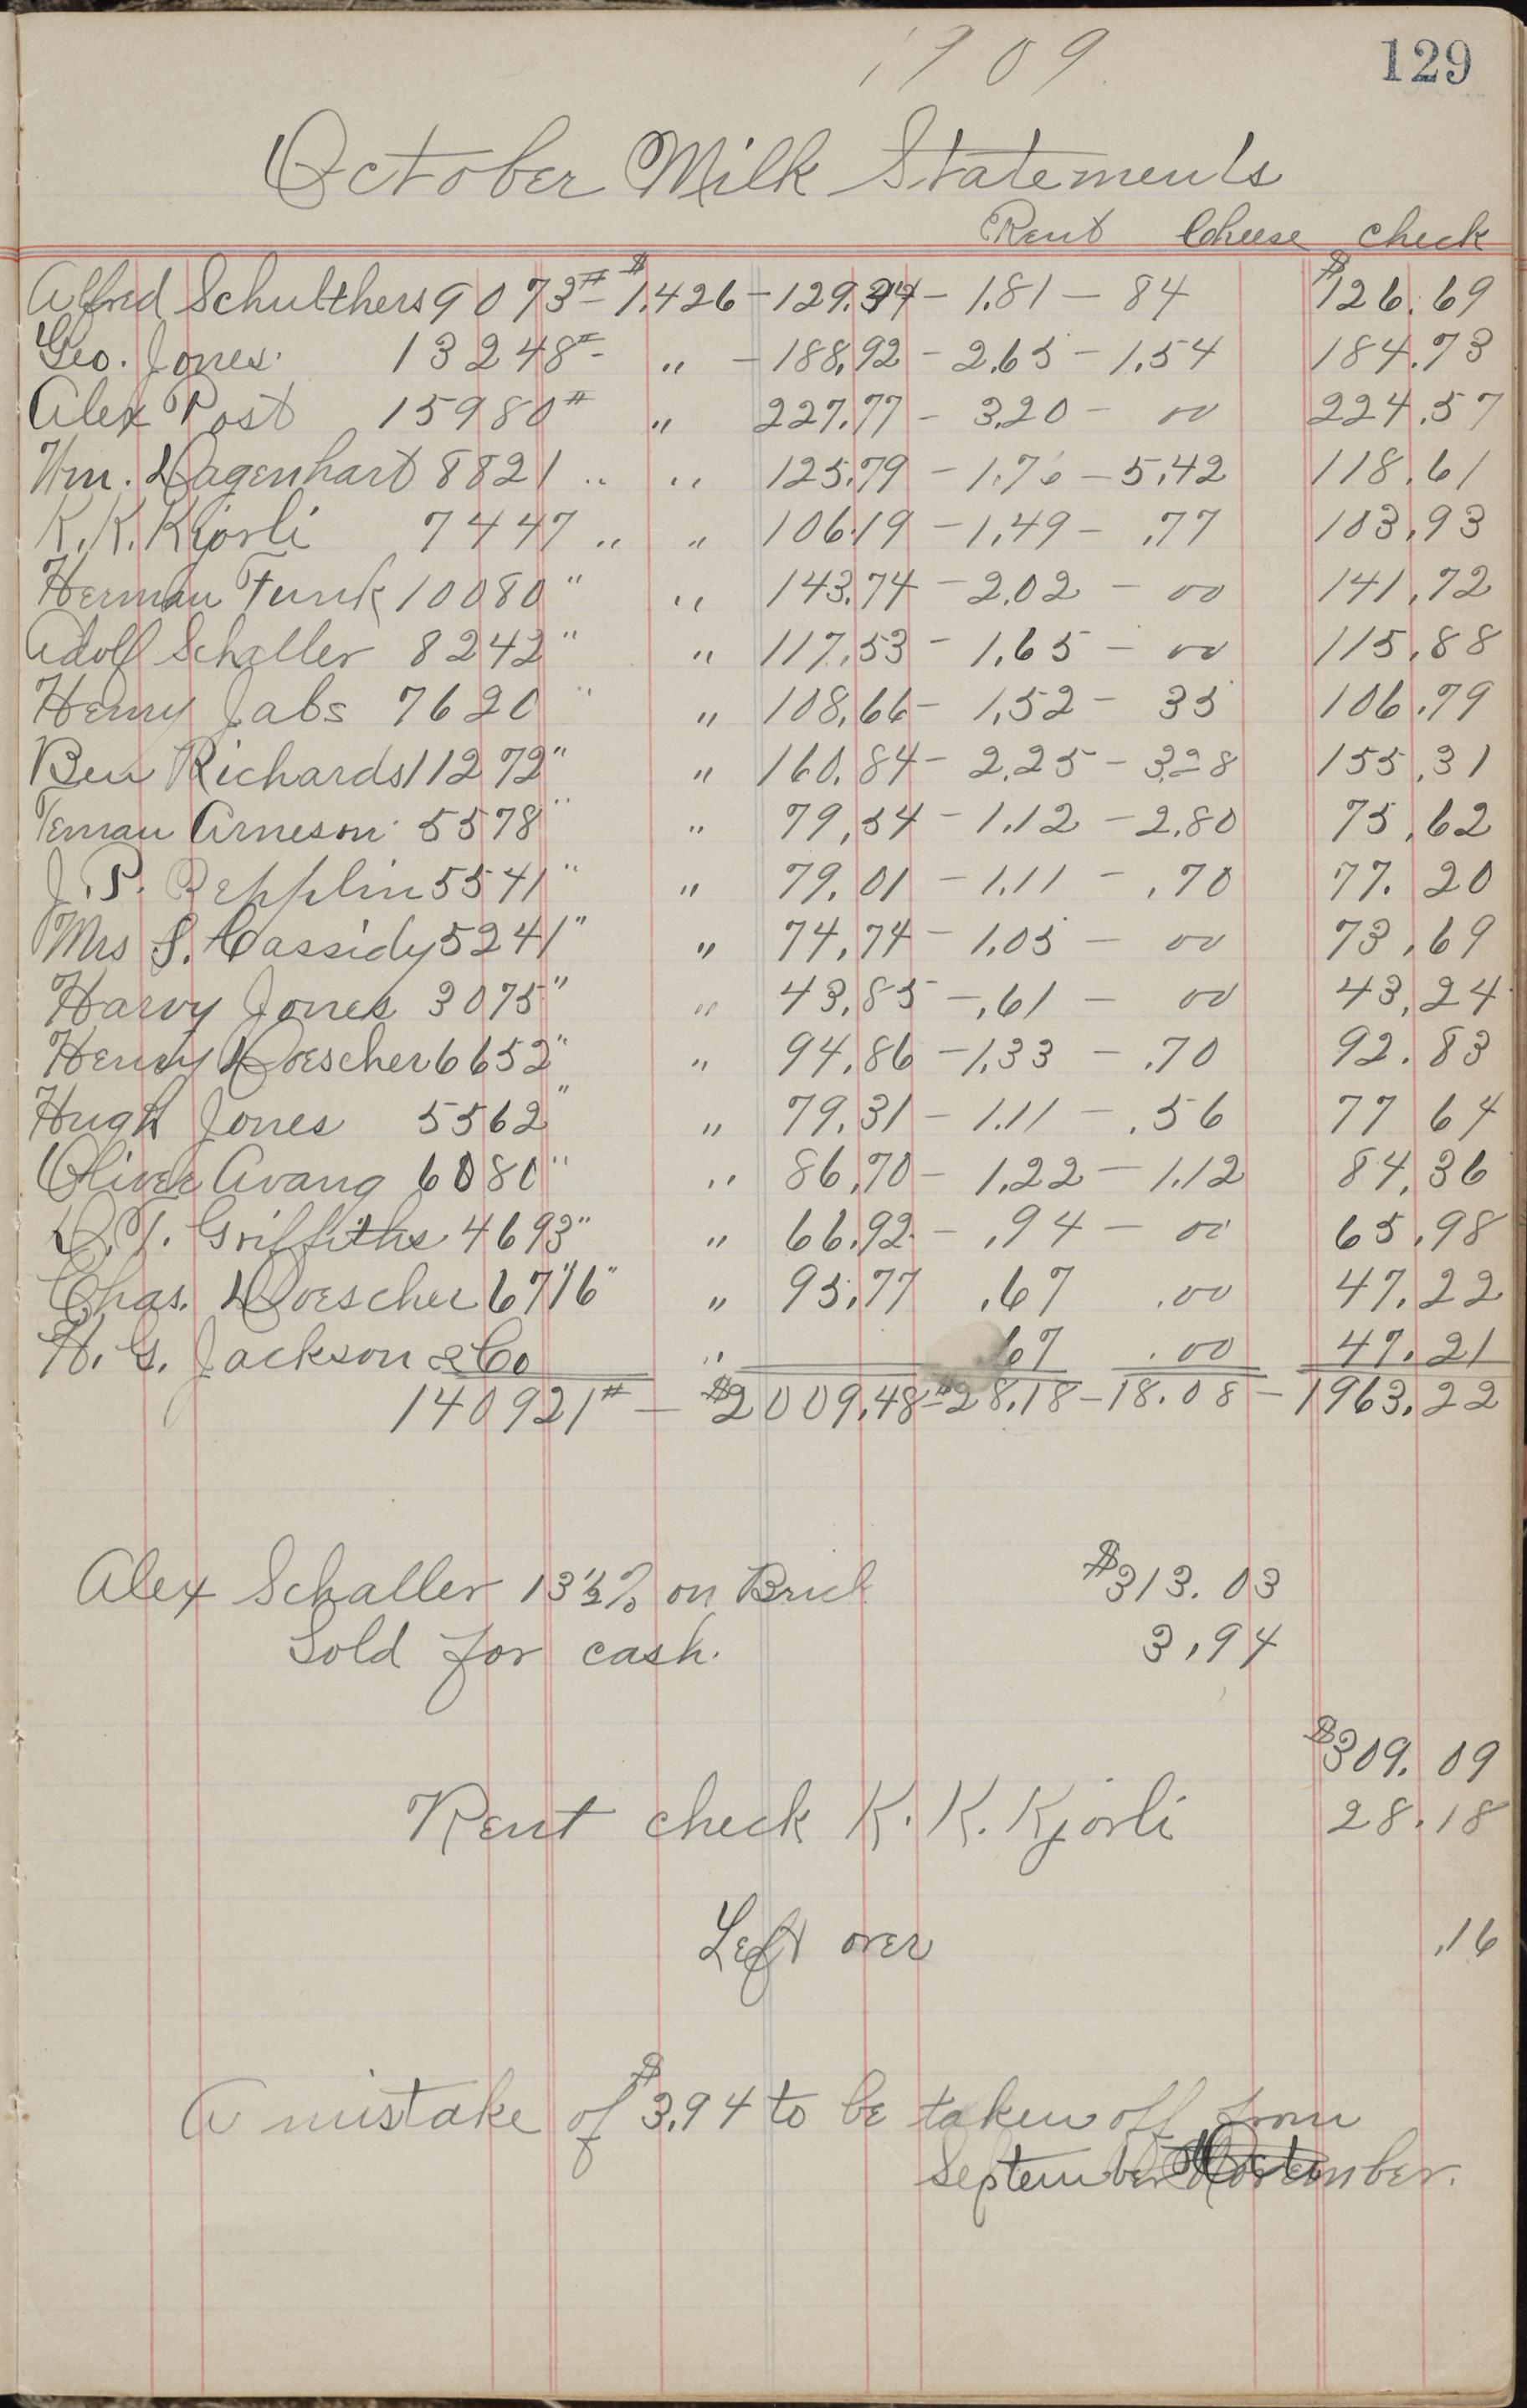 1909.
129
October Milk Statements
Rent Cheese check
Alfred Schulthers 9073# - $1.426 - 129.34 - 1.81 - 84 $126.69
Geo. Jones. 13248# - " - 188.92 - 2.65 - 1.54 184.73
Alex Post 15980# " 227.77 - 3.20 - 00 224.57
Wm. Dagenhart 8821 " " 125.79 - 1.76 - 5.42 118.61
K. K. Kjorli 7447 " " 106.19 - 1.49 - .77 103.93
Herman Funk 10080 " " 143.74 - 2.02 - 00 141.72
Adolf Schaller 8242 " " 117.53 - 1.65 - 00 115.88
Henry Jabs 7620 " " 108.66 - 1.52 - 35 106.79
Ben Richards 11272 " " 160.84 - 2.25 - 3.28 155.31
Teman Arneson 5578 " " 79.54 - 1.12 - 2.80 75.62
J. P. Repplin 5541 " " 79.01 - 1.11 - .70 77.20
Mrs S. Cassidy 5241 " " 74.74 - 1.05 - 00 73.69
Harvy Jones 3075 " " 43.85 - .61 - 00 43.24
Henry Doescher 6652 " " 94.86 - 1.33 - .70 92.83
Hugh Jones 5562 " " 79.31 - 1.11 - .56 77 64
Oliver Avang 6080 " " 86.70 - 1.22 - 1.12 84.36
D. T. Griffiths 4693 " " 66.92 - .94 - 00 65.98
Chas. Doescher 6716 " " 95.77 .67 .00 47.22
H. G. Jackson & Co " 67 .00 47.21
140921# - $2009.48 - $28.18 - 18.08 - 1963.22
Alex Schaller 13½% on Brick $313.03
Sold for cash. 3.94
$309.09
Rent check K. K. Kjorli 28.18
Left over .16
A mistake of $3.94 to be taken off from
September November.